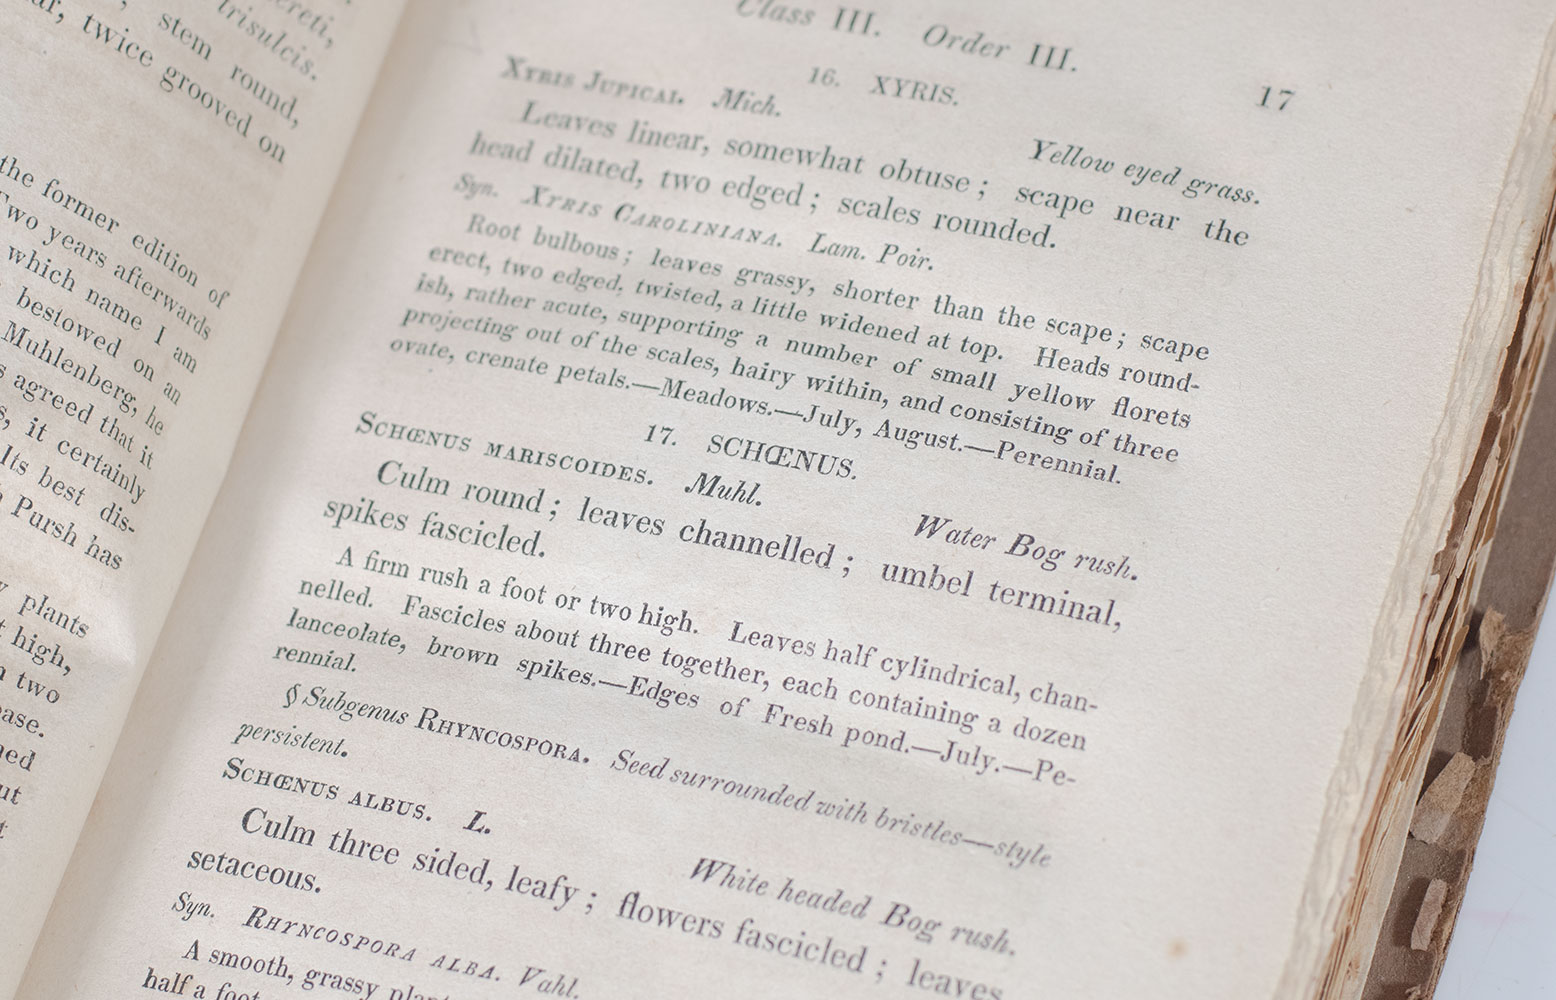 creti,
trisulcis.
stem round,
twice grooved on
the former edition of
Two years afterwards
which name I am
bestowed on an
Muhlenberg, he
agreed that it
it certainly
Its best dis-
Pursh has
plants
high,
two
Class III. Order III.
17
16. XYRIS.
Xyris Jupicai. Mich.
Yellow eyed grass.
Leaves linear, somewhat obtuse; scape near the
head dilated, two edged; scales rounded.
Syn. Xyris Caroliniana. Lam. Poir.
Root bulbous; leaves grassy, shorter than the scape; scape
erect, two edged, twisted, a little widened at top. Heads round-
ish, rather acute, supporting a number of small yellow florets
projecting out of the scales, hairy within, and consisting of three
ovate, crenate petals.—Meadows.—July, August.—Perennial.
17. SCHŒNUS.
Schœnus mariscoides. Muhl.
Water Bog rush.
Culm round; leaves channelled; umbel terminal,
spikes fascicled.
A firm rush a foot or two high. Leaves half cylindrical, chan-
nelled. Fascicles about three together, each containing a dozen
lanceolate, brown spikes.—Edges of Fresh pond.—July.—Pe-
rennial.
§ Subgenus Rhyncospora. Seed surrounded with bristles—style
persistent.
Schœnus albus. L.
White headed Bog rush.
Culm three sided, leafy; flowers fascicled; leaves
setaceous.
Syn. Rhyncospora alba. Vahl.
A smooth, grassy
half a foot